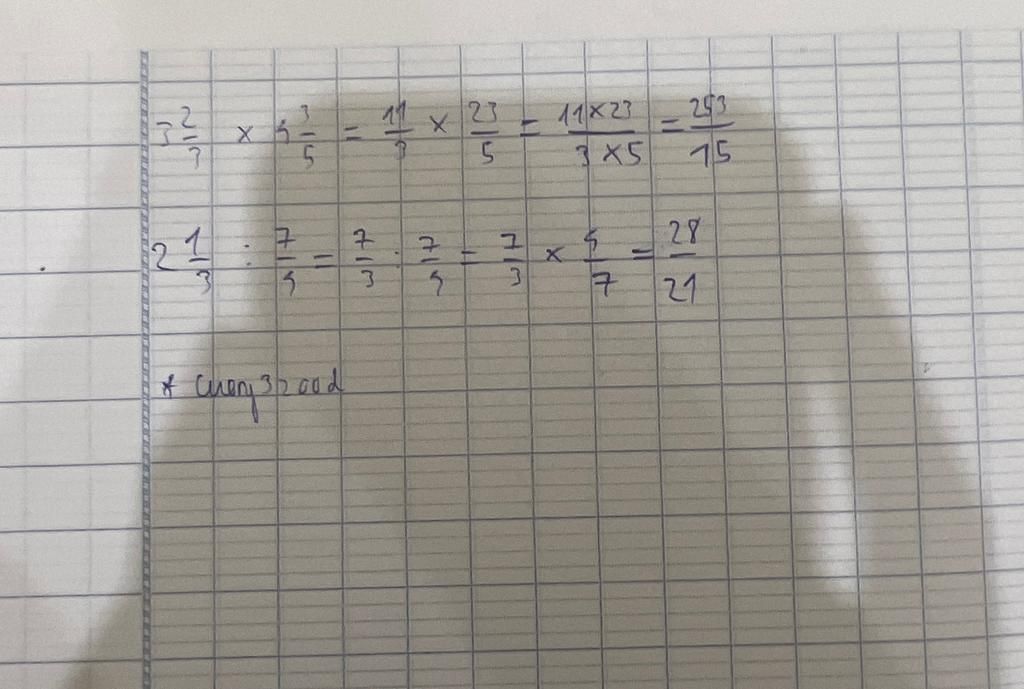 3 2/3 × 4 3/5 = 11/3 × 23/5 = 11×23/3×5 = 253/15
2 1/3 : 7/4 = 7/3 : 7/4 = 7/3 × 4/7 = 28/21